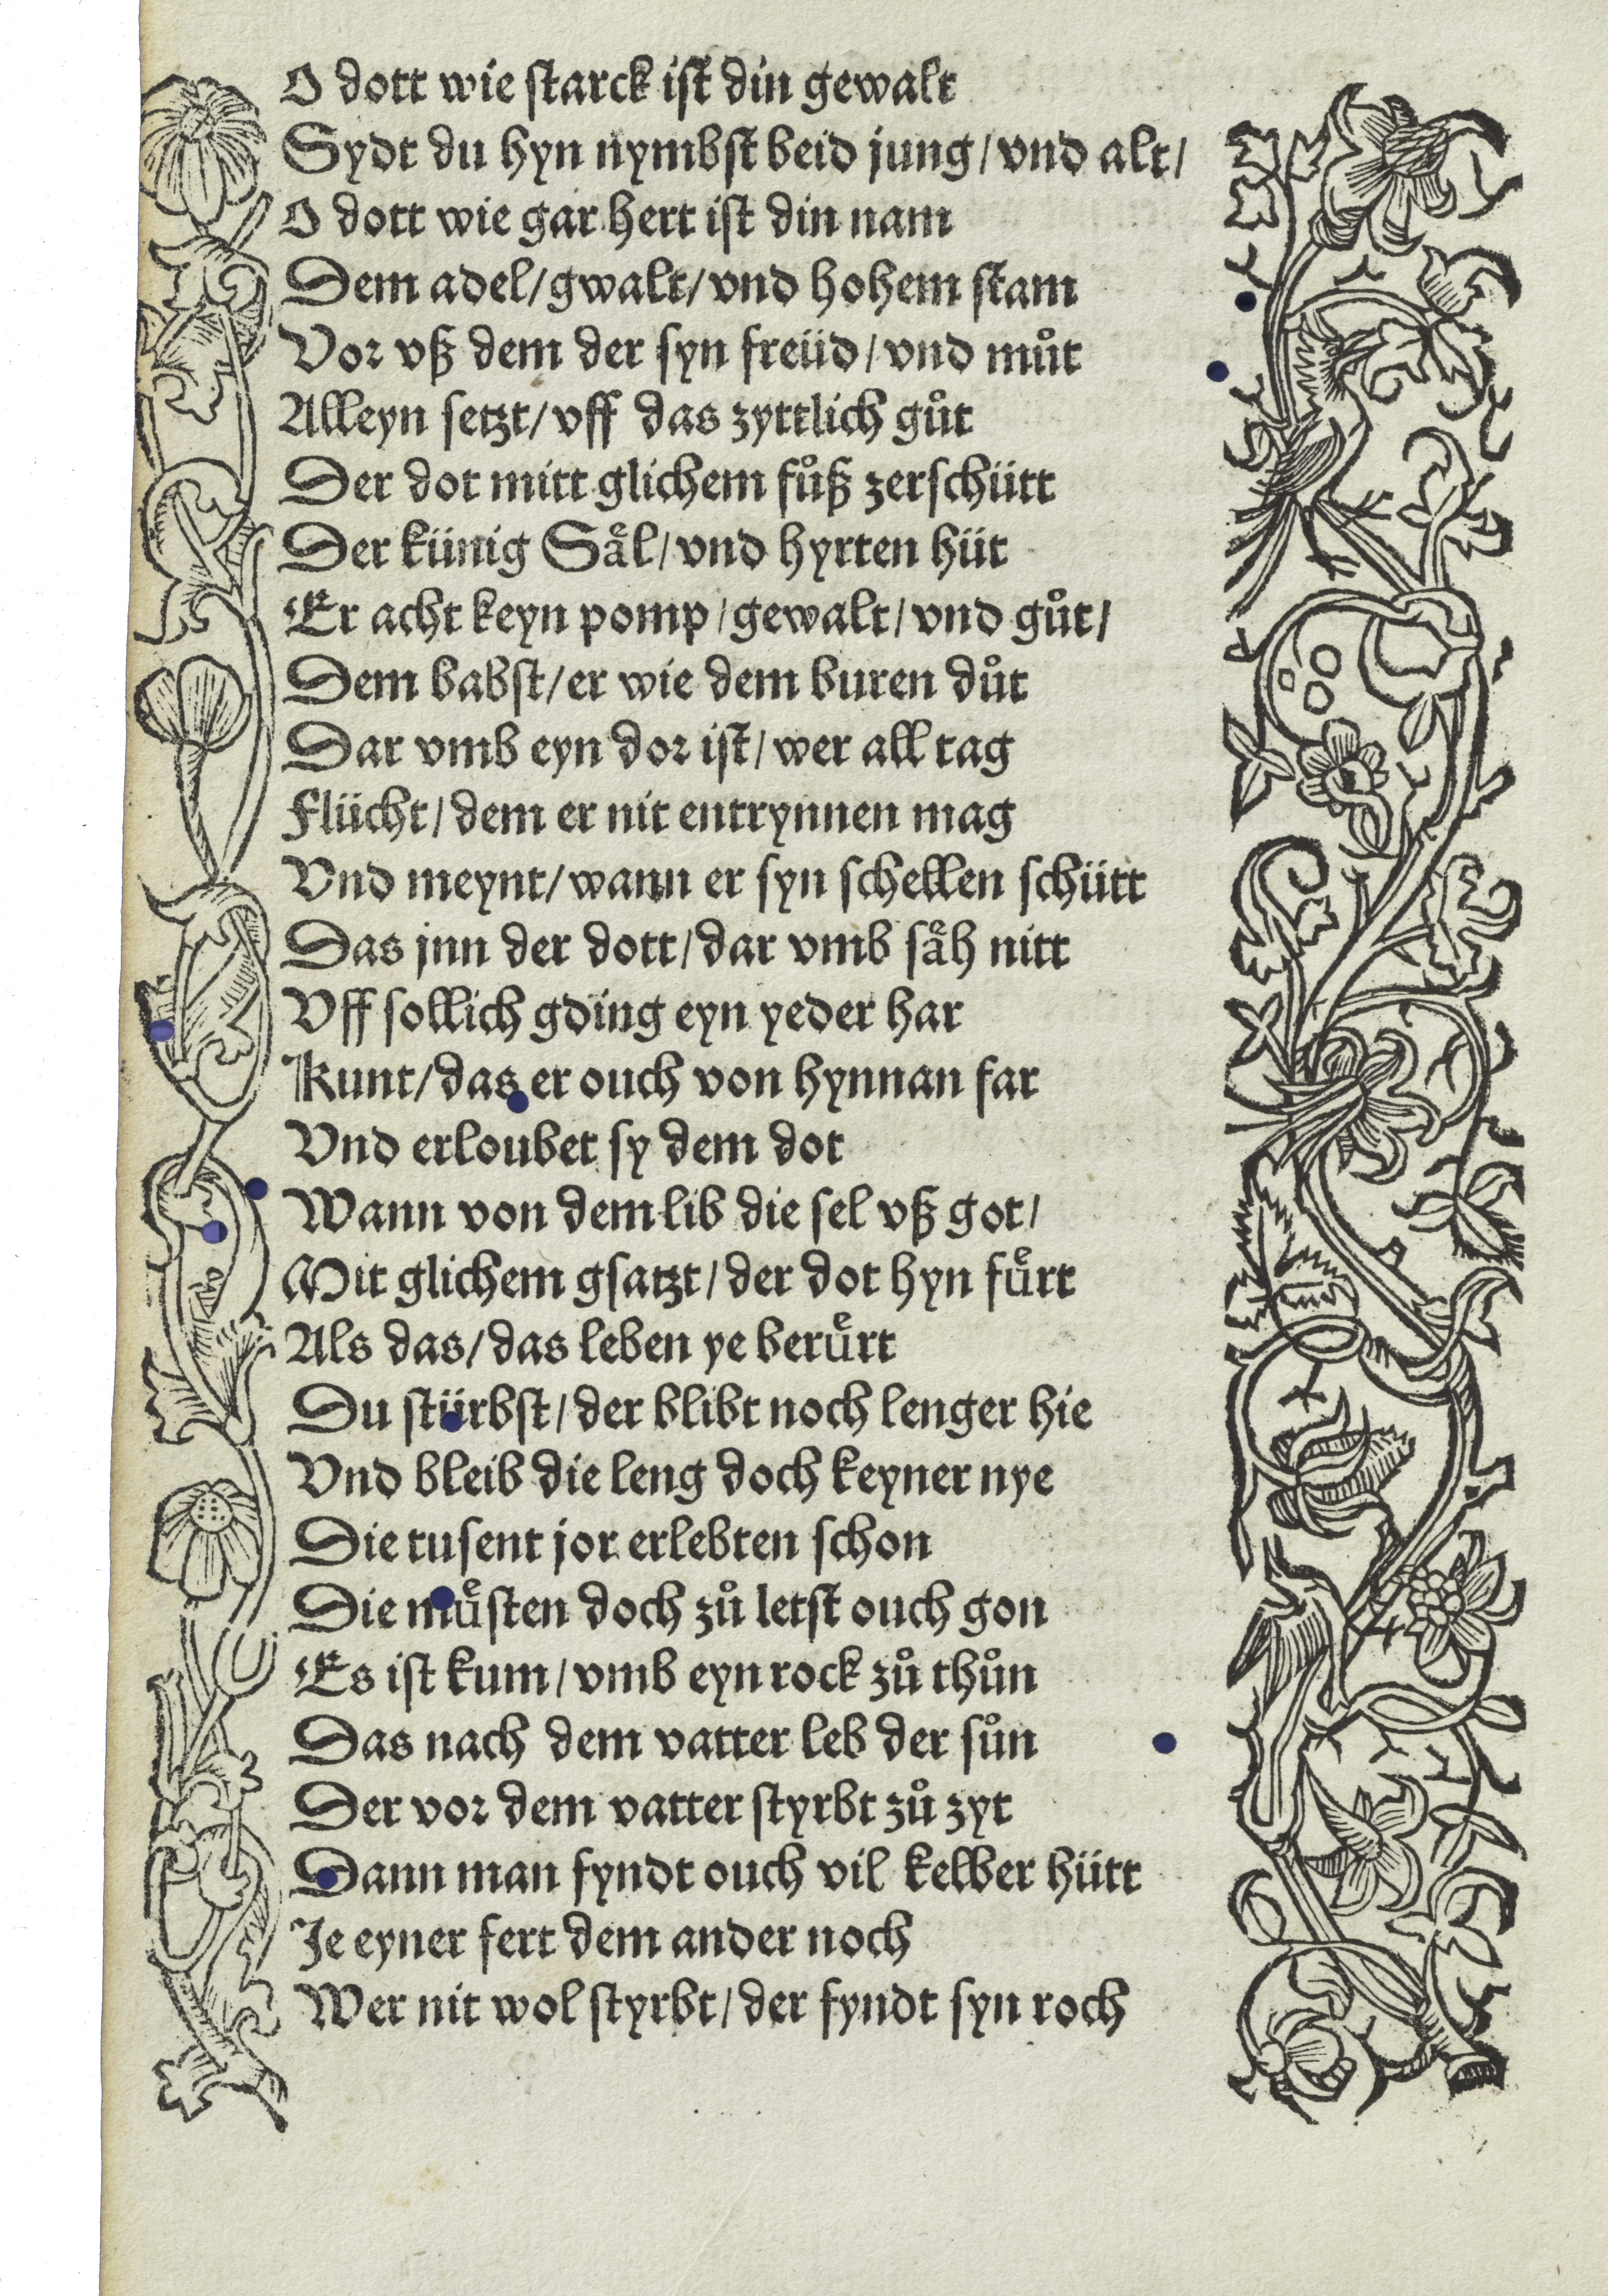 O dott wie starck ist din gewalt
Sydt du hyn nymbst beid jung/vnd alt/
O dott wie gar hert ist din nam
Dem adel/gwalt/vnd hohem stam
Vor vß dem der syn freüd/vnd můt
Alleyn setzt/vff das zyttlich gůt
Der dot mitt glichem fůß zerschütt
Der künig Säl/vnd hyrten hüt
Er acht keyn pomp/gewalt/vnd gůt/
Dem babst/er wie dem buren důt
Dar vmb eyn dor ist/wer all tag
Flücht/dem er nit entrynnen mag
Vnd meynt/wann er syn schellen schütt
Das jnn der dott/dar vmb säh nitt
Vff sollich gding eyn yeder har
Kunt/das er ouch von hynnan far
Vnd erloubet sy dem dot
Wann von dem lib die sel vß got/
Mit glichem gsatzt/der dot hyn fuͤrt
Als das/das leben ye beruͤrt
Du stürbst/der blibt noch lenger hie
Vnd bleib die leng doch keyner nye
Die tusent jor erlebten schon
Die muͤsten doch zů letst ouch gon
Es ist kum/vmb eyn rock zů thůn
Das nach dem vatter leb der sůn
Der vor dem vatter styrbt zů zyt
Dann man fyndt ouch vil kelber hütt
Je eyner fert dem ander noch
Wer nit wol styrbt/der fyndt syn roch